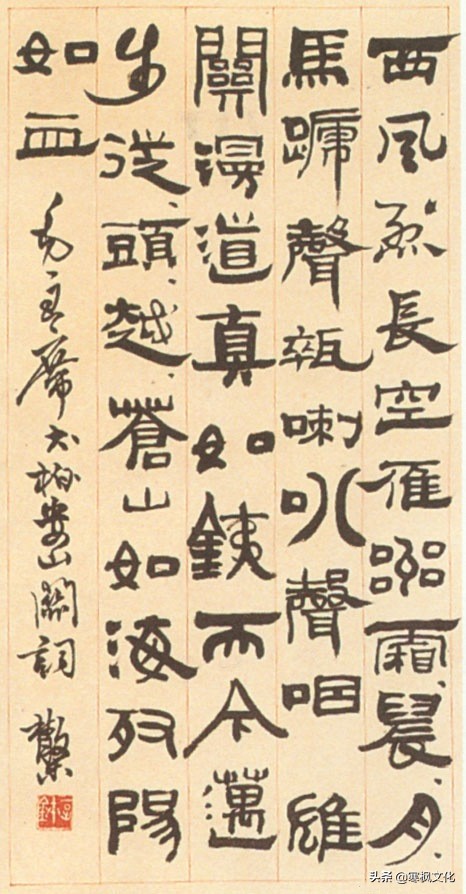 西風烈長空雁嘂霜、晨、月、
馬蹏聲碎喇叭聲咽雄
關漫道真如銕而今邁
步從、頭、越、蒼山如海殘陽
如血
毛主席婁山關詞
头条 @寒枫文化